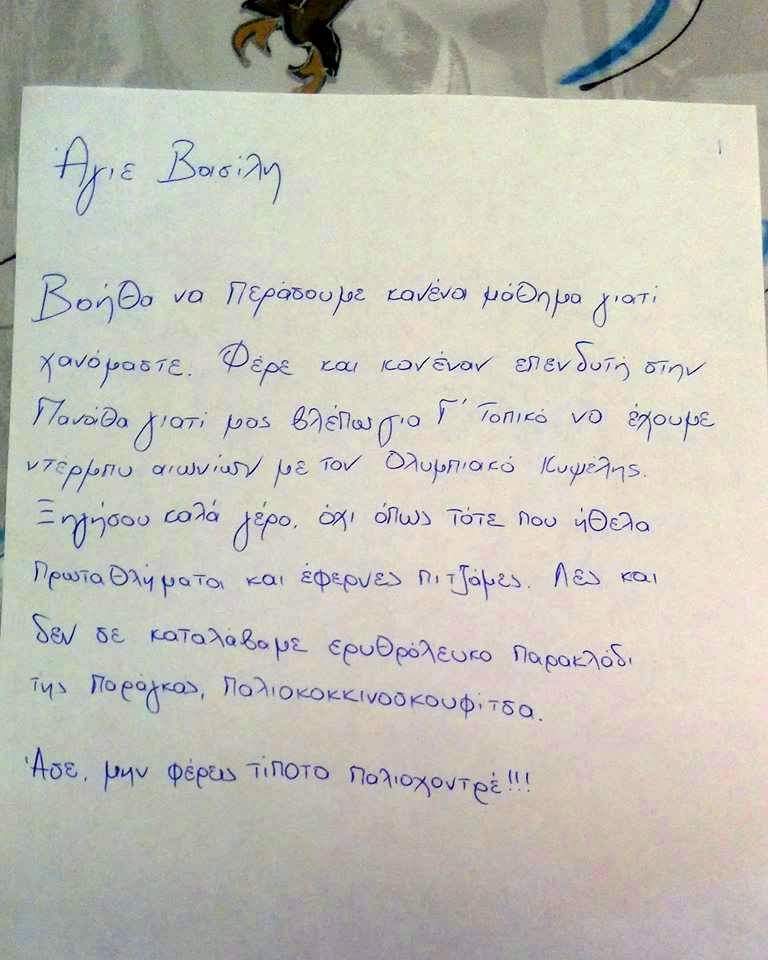 Άγιε Βασίλη
Βοήθα να περάσουμε κανένα μάθημα γιατί
χανόμαστε. Φέρε και κανέναν επενδυτή στην
Πανάθα γιατί μας βλέπω για Γ' Τοπικό να έχουμε
ντέρμπυ αιωνίων με τον Ολυμπιακό Κυψέλης.
Ξηγήσου καλά γέρο, όχι όπως τότε που ήθελα
πρωταθλήματα και έφερνες πιτζάμες. Λες και
δεν σε καταλάβαμε ερυθρόλευκο παρακλάδι
της παράγκας, παλιοκοκκινοσκουφίτσα.
Άσε, μην φέρεις τίποτα παλιοχοντρέ!!!